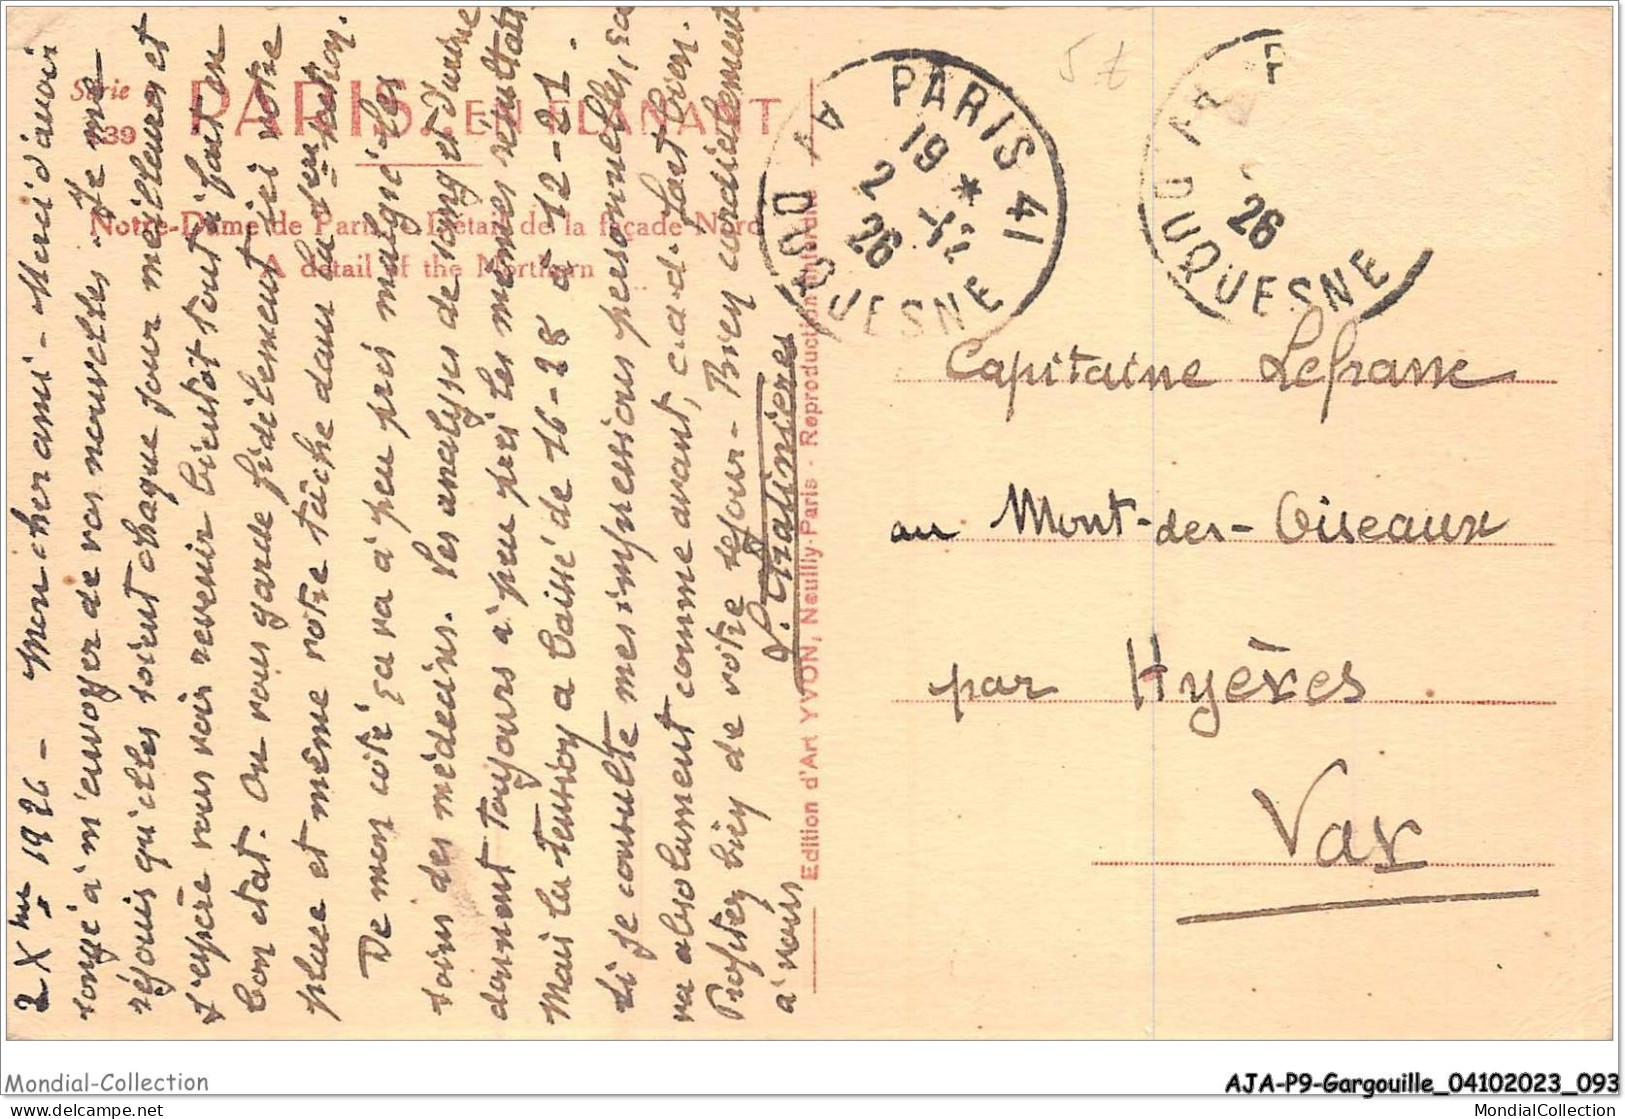 Série
39
PARIS... EN FLANANT
Notre-Dame de Paris - Détail de la façade Nord
A detail of the Northern
2 Xbre 1926 - Mon cher ami - Merci d'avoir
songé à m'envoyer de vos nouvelles - Je me
réjouis qu'elles soient chaque jour meilleures et
j'espère vous voir revenir bientôt tout à fait en
bon état. On vous garde fidèlement ici votre
place et même votre tâche dans la Section.
De mon côté ça va à peu près malgré les
soins des médecins. Les analyses de sang et d'urine
donnent toujours à peu près les mêmes résultats
Mais la tension a baissé de 16-28 à 12-21.
Si je consulte mes impressions personnelles, ça
va absolument comme avant, c.a.d. fort bien.
Profitez bien de votre séjour - Bien cordialement
à vous
Edition d'Art YVON, Neuilly-Paris - Reproduction interdite
PARIS 41
19 *
2 -12
26
AV DUQUESNE
5 t
P
AV DUQUESNE
26
Capitaine Lefranc
au Mont-des-Oiseaux
par Hyères
Var
Mondial-Collection
AJA-P9-Gargouille_04102023_093
www.delcampe.net
MondialCollection